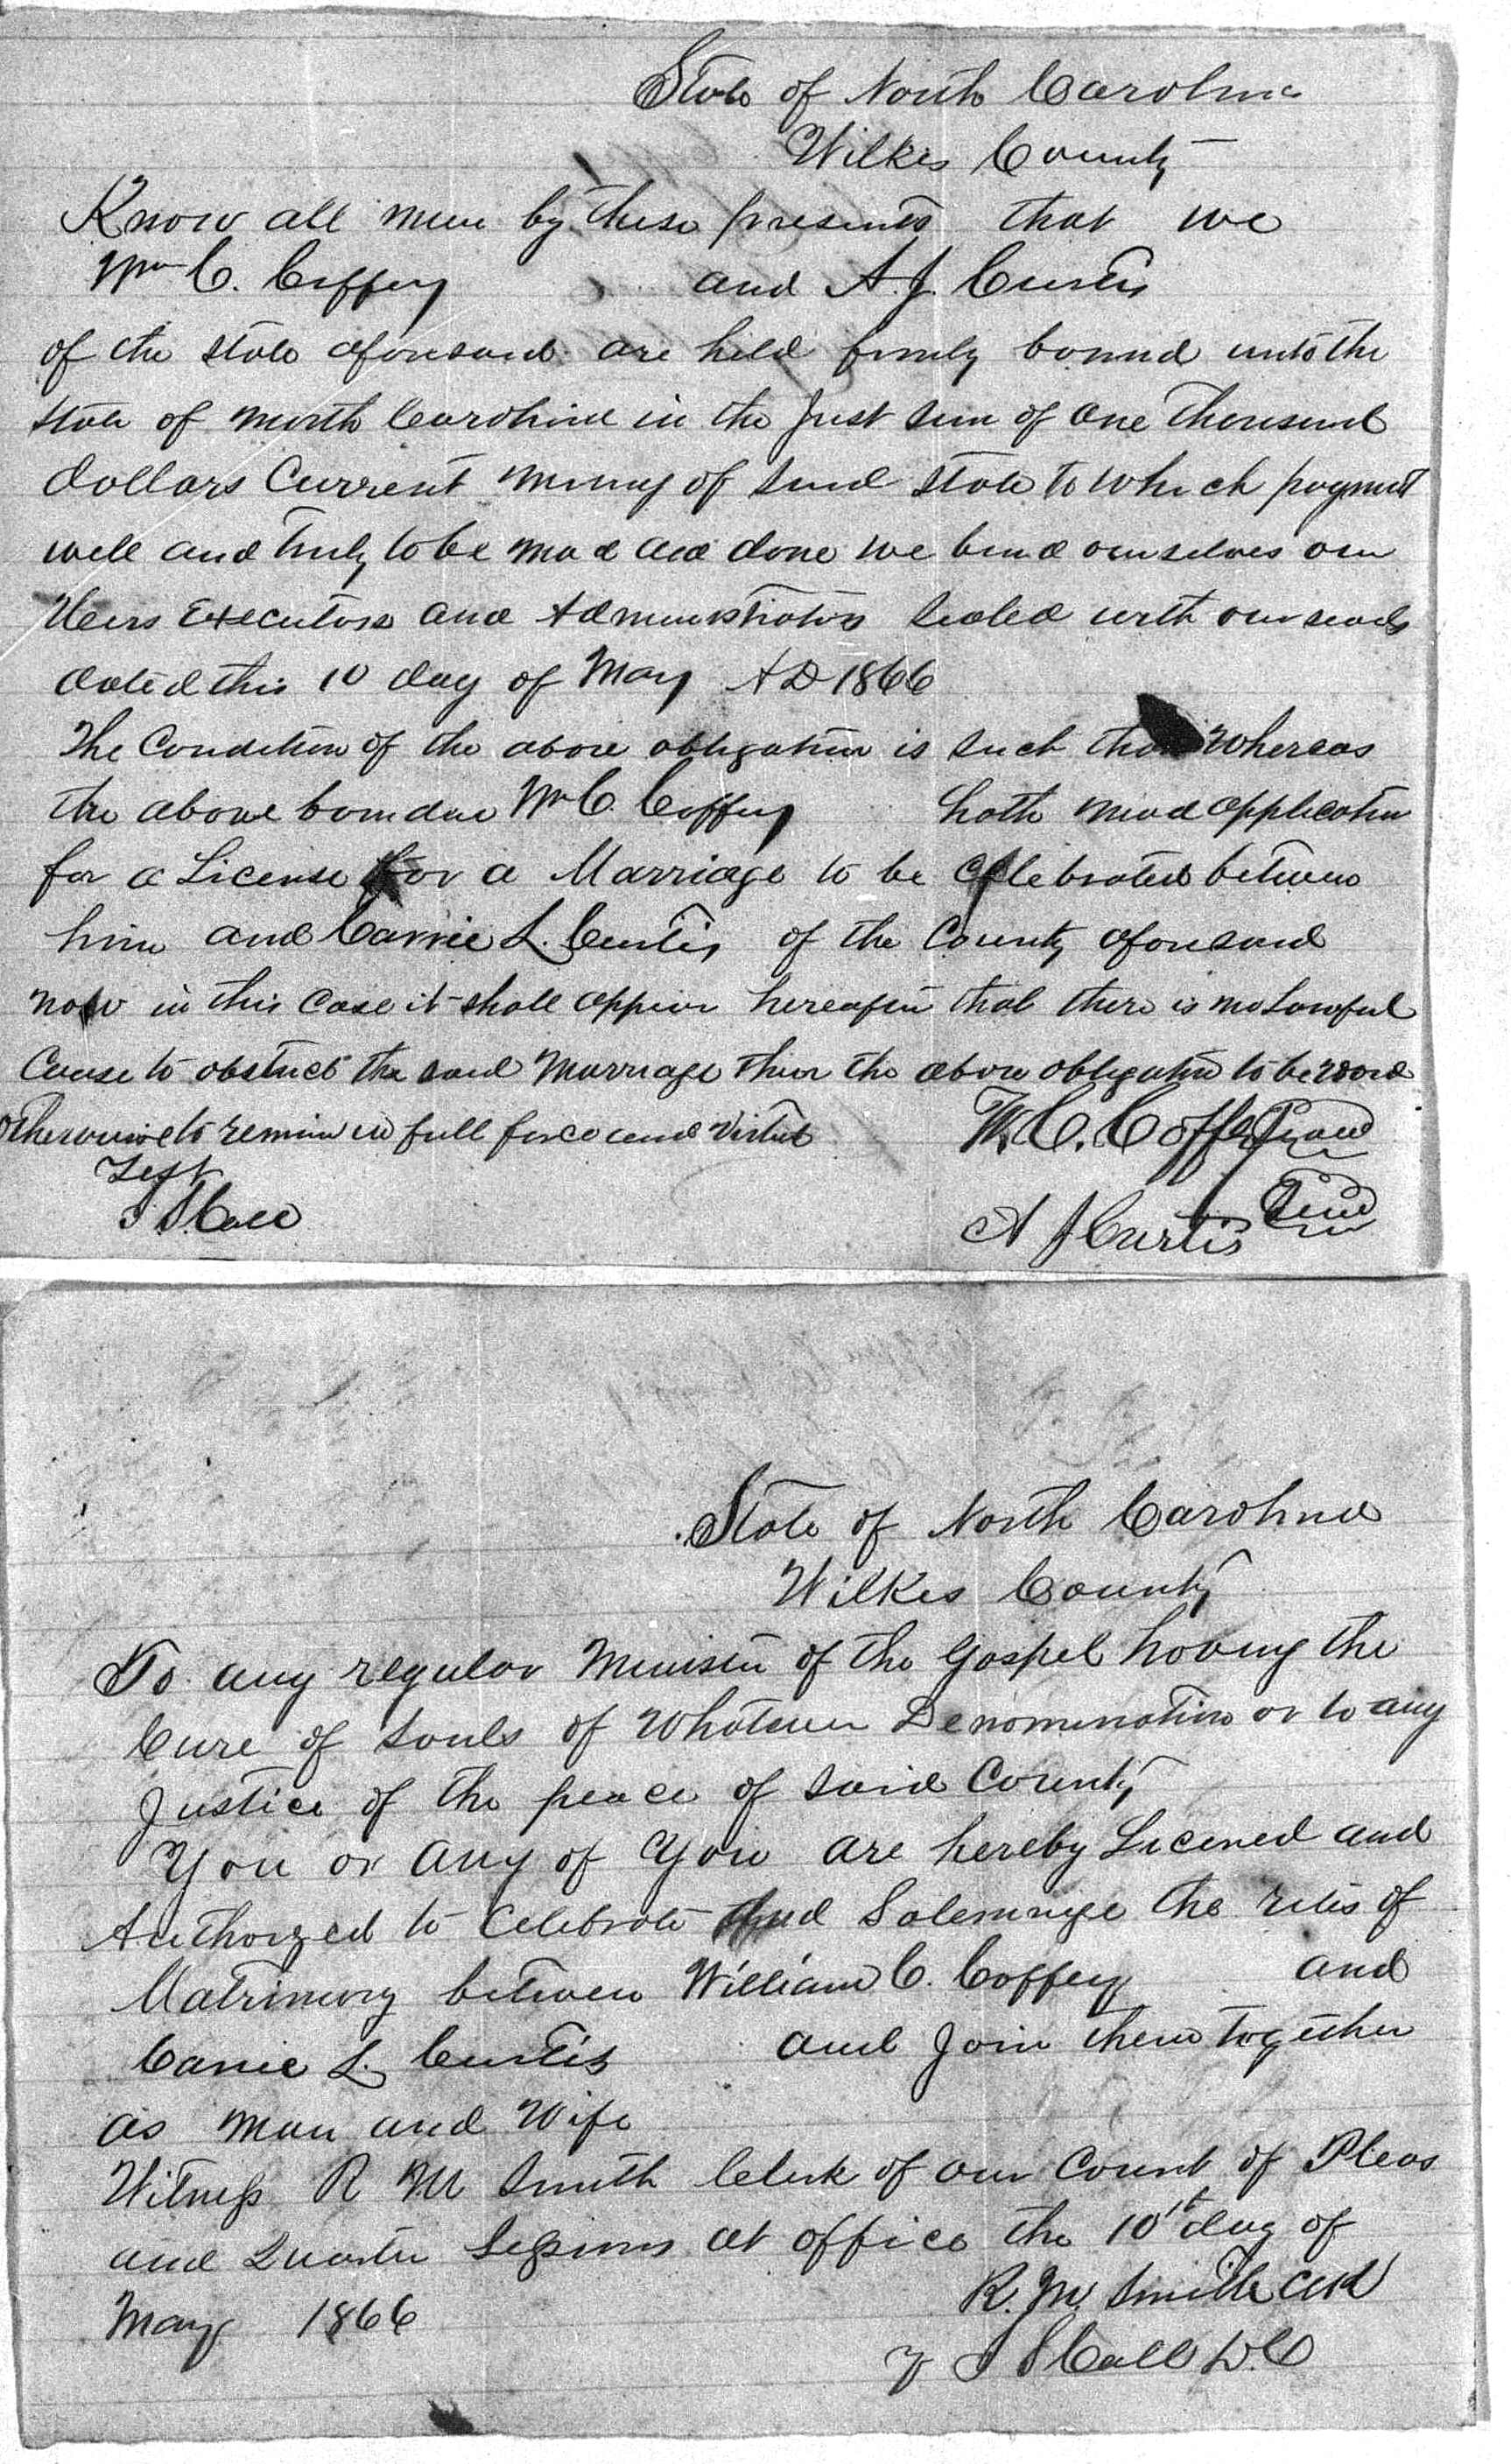 State of North Carolina
Wilkes County
Know all men by these presents that we
Wm C. Coffey and A. J. Curtis
of the state aforesaid are held firmly bound unto the
state of north Carolina in the Just sum of one Thousand
dollars Current money of said state to which payment
well and truly to be mad and done we bind ourselves our
Heirs Executors and Administrators sealed with our seals
dated this 10 day of May AD 1866
The Condition of the above obligation is such that Whereas
the above bounden Wm C. Coffey hath mad application
for a License for a Marriage to be Celebrated between
him and Carrie L. Curtis of the County aforesaid
now in this Case it shall appear hereafter that there is no Lawful
Cause to obstruct the said Marriage then the above obligation to be void
otherwise to remain in full force and virtue
W. C. Coffey Seal
Test
A J Curtis Seal
Call
State of North Carolina
Wilkes County
To any regular Minister of the Gospel having the
Cure of Souls of Whatever Denomination or to any
Justice of the peace of said County
You or any of You are hereby Licened and
Authorzed to Celebrate and Solemnize the rites of
Matrimony between William C. Coffey and
Carrie L. Curtis and Join them together
as man and Wife
Witness R M Smith Clerk of our Court of Pleas
and Quarter Sessions at office the 10th day of
May 1866
R. M. Smith Clk
Call D.C